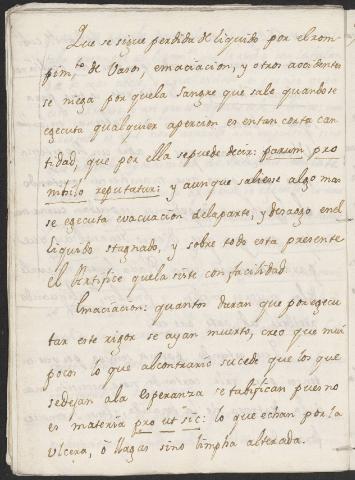 Que se sigue perdida de liquido por el rom-
pim.to de Vasos, emaciacion, y otros accidentes
se niega por quela sangre que sale quandose
egecuta qualquier apercion es entan corta can
tidad, que por ella sepuede decir: parum pro
nihilo reputatur: y aunque saliese algo mas
se egecuta evacuacion delaparte, y desaogo enel
liquido stagnado, y sobre todo esta presente
el Artifice quela siste con facilidad.
Emaciacion: quantos duran que por egecu
tar este rigor se ayan muerto, creo que mui
pocos lo que alcontrario sucede que los que
sedejan ala Esperanza se tabifican pues no
es materia pro ut sic: lo que echan por la
Ulcera, ò llagas sino limpha alterada.